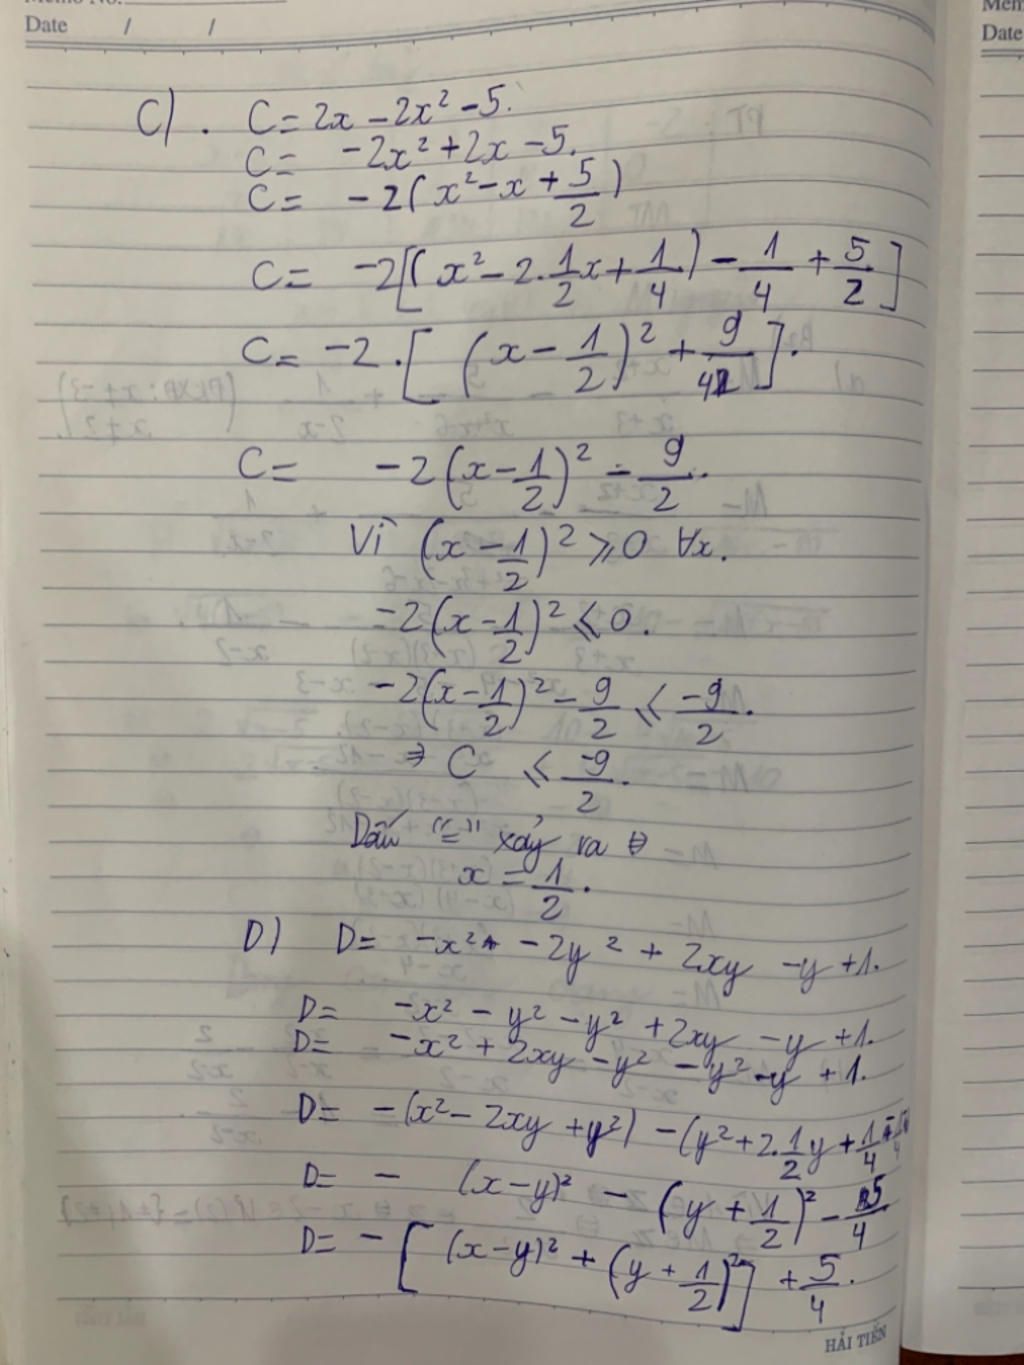 Date / /
Date
C). C = 2x - 2x² - 5.
C = -2x² + 2x - 5.
C = -2(x² - x + 5/2)
C = -2[(x² - 2.1/2x + 1/4) - 1/4 + 5/2]
C = -2.[(x - 1/2)² + 9/4].
C = -2(x - 1/2)² - 9/2.
Vì (x - 1/2)² ⩾ 0 ∀x.
-2(x - 1/2)² ⩽ 0.
-2(x - 1/2)² - 9/2 ⩽ -9/2.
⇒ C ⩽ -9/2.
Dấu "=" xảy ra ⇔
x = 1/2.
D) D = -x² - 2y² + 2xy - y + 1.
D = -x² - y² - y² + 2xy - y + 1.
D = -x² + 2xy - y² - y² - y + 1.
D = -(x² - 2xy + y²) - (y² + 2.1/2y + 1/4
D = - (x - y)² - (y + 1/2)² - 5/4
D = -[(x - y)² + (y + 1/2)²] + 5/4.
HẢI TIẾN